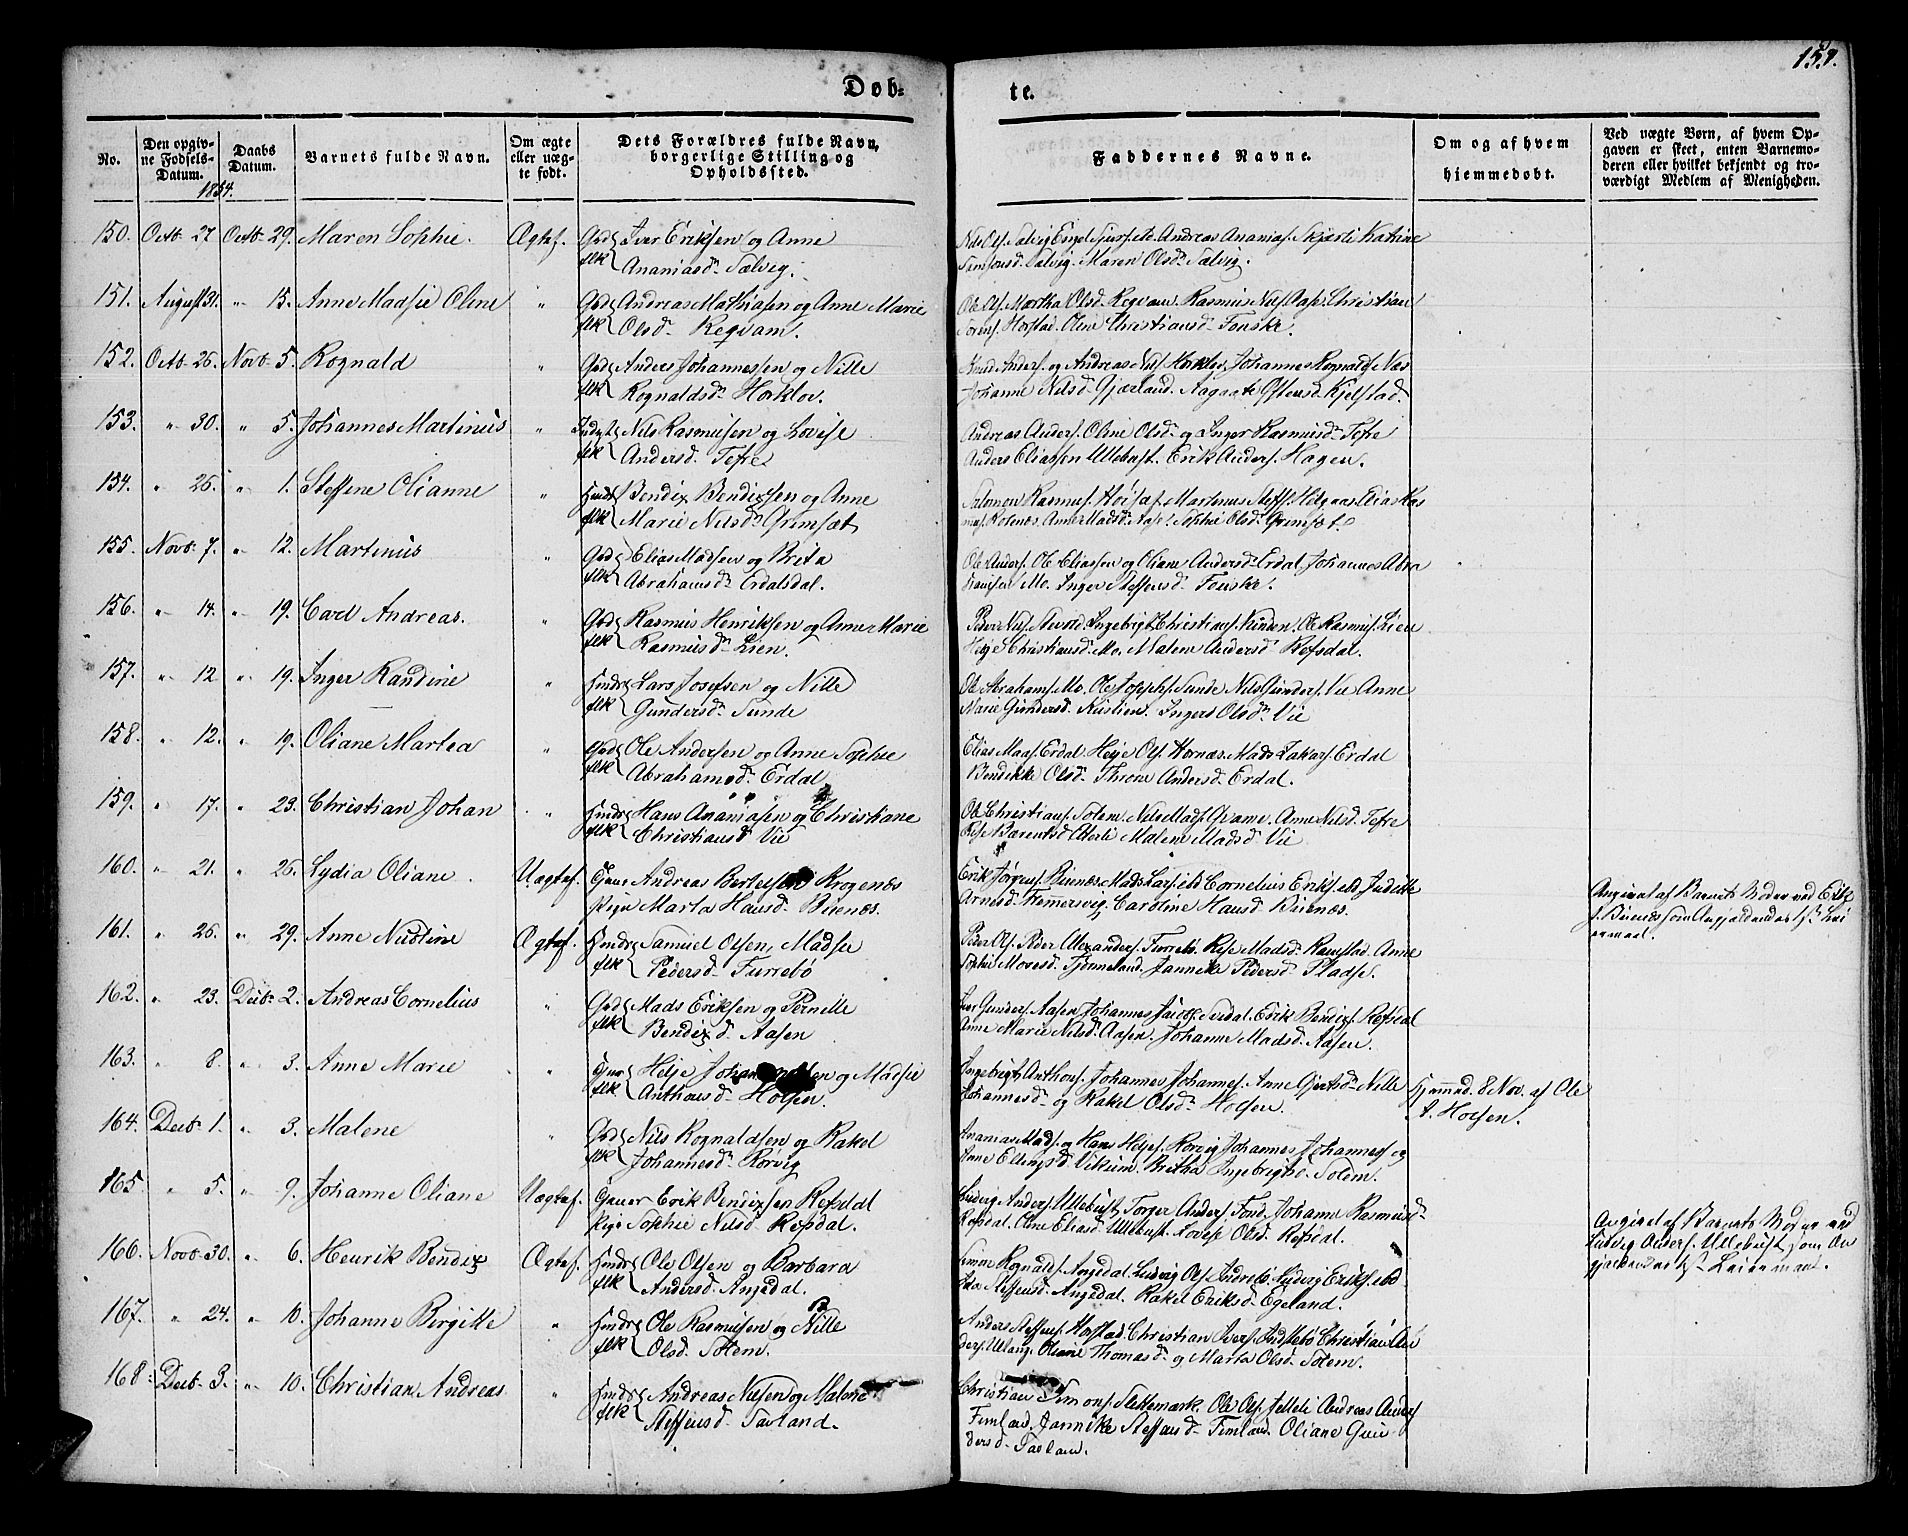 151.
Døb-
te.
No.
Den opgiv-
ne Fødsels-
Datum.
Daabs
Datum.
Barnets fulde Navn.
Om ægte
eller uæg-
te født.
Dets Forældres fulde Navn,
borgerlige Stilling og
Opholdssted.
Faddernes Navne.
Om og af hvem
hjemmedøbt.
Ved uægte Børn, af hvem Op-
gaven er skeet, enten Barnemo-
deren eller hvilket bekjendt og tro-
værdigt Medlem af Menigheden.
1854.
150. Octb. 27 Octb. 29. Maren Sophie. Ægtef. Gdd Iver Eriksen og Anne
flk Ananiasd. Sælvig.
Nils Ols. Salvig Engel Sjurs. ibd. Andreas Ananias. Skjerli Katrine
Simonsd. Salvig. Maren Olsd. Salvig.
151. August 31. " 15. Anne Madsie Oline " Gdd Andreas Mathiasen og Anne Marie
flk Olsd. Regvam.
Ole Ols. Martha Olsd. Regvam. Rasmus Nils. Aase. Christian
Sørens. Horstad. Oline Christiansd. Fonske.
152. Octb. 26. Novb. 5. Rognald " Gdd Anders Johannessen og Nille
flk Rognaldsd. Horklov.
Knud Anders. og Andreas Nils. Horklov, Johannes Rognalds. Næs
Johanne Nilsd. Gjærland. Aagaate Ostensd. Kjelstad.
153. " 30. " 5. Johannes Martinus " Indst Nils Rasmussen og Lovise
flk Andersd. Tefre
Andreas Anders. Oline Olsd. og Inger Rasmusd. Tefre
Anders Eliassen Ullebust. Erik Anders. Hagen.
154. " 26. " 1. Steffene Olianne " Hmd Bendix Bendixsen og Anne
flk Marie Nilsd. Grimsæt
Salomon Rasmus. Hois af. Martinus Steffs. Helgaas Elias Ras
mus. Rotenæs. Anne Madsd. Aase. Sophie Olsd. Grimsæt.
155. Novb. 7. " 12. Martinus " Gdd Elias Madsen og Brita
flk Abrahamsd. Erdalsdal.
Ole Anders. Ole Eliassen og Oliane Andersd. Erdal Johannes Abra
hamsen Mo. Inger Steffensd. Fonske.
156. " 14. " 19. Carl Andreas. " Gdd Rasmus Henriksen og Anne Marie
flk Rasmusd. Lien.
Peder Nils. Ingebrigt Christians. Kinden. Ole Rasmus. Lien
Helje Christiansd. Mo. Malene Andersd. Refsdal.
157. " 12 " 19. Inger Randine " Hmd Lars Josefsen og Nille
flk Gundersd. Sunde
Ole Abrahams. Mo. Ole Josephs. Sunde Nils Gunders. Vie Anne
Marie Gundersd. Ingers Olsd. Vie
158. " 12. " 19. Oliane Martea " Gdd Ole Andersen og Anne Sophie
flk Abrahamsd. Erdal
Elias Maas. Erdal. Helje Ols. Hornæs. Mads Zakars. Erdal
Bendikke Olsd. Throne Andersd. Erdal.
159. " 17. " 23. Christian Johan " Hmd Hans Ananiasen og Christiane
flk Christiansd. Vie
Ole Christians. Solem. Nils Mads. Qvame. Anne Nilsd. Tefre
Barentsd. Malene Madsd. Vie
160. " 21. " 26. Lydia Oliane. Uægtef. Gauer Andreas Bertelsen Krogenæs
Pige Marta Hansd. Biienæs.
Erik Jørgens. Biienæs Mads Lars. ibd. Cornelius Eriks. ibd Judithe
Arnesd. Hemmersvig Caroline Hansd. Biienæs.
Angivet af Barnets Moder ved Erik
J. Biienæs som Angjældendes
161. " 26. " 29. Anne Nustine Ægtef. Hmd Samuel Olsen, Madsie
flk Pedersd. Furrebø
Peder Ols. Peder Alexanders. Furrebø. Madsd. Ramstad. Anne
Sophie Mosesd. Tjønneland. Jannike Pedersd. Pladse.
162. " 23. Decb. 2. Andreas Cornelius " Gdd Mads Eriksen og Pernille
flk Bendixd. Aasen
Iver Gunders. Aasen Johannes Jacobs. Svedal. Erik Bendixs. Refsdal
Anne Marie Nilsd. Aasen. Johanne Madsd. Aasen.
163. " 8. " 3. Anne Marie " Helje Johannessen og Madsie
flk Anthonsd. Holsen.
Ingebrigt Anthons. Johannes Johannes. Anne Gjertsd. Nille
Johannesd. og Rakel Olsd. Holsen.
Hjemmed. 8 Nov. af Ole
A. Holsen.
164. Decb. 1. " 3. Malene " Gdd Nils Rognaldsen og Rakel
flk Johannesd. Rørvig
Ananias Mads. og Hans Heljes. Rørvig Johannes Johannes. og
Anne Ellingsd. Vikum. Britha Ingebrigtsd. Solem.
165. " 5. " 9. Johanne Oliane Uægtef. Gauer Erik Bendixsen Refsdal
Pige Sophie Nilsd. Refsdal.
Ludvig Anders. Ullebust Torger Anders. Fond. Johanne Rasmusd.
Refsdal. Oline Eliasd. Ullebust. Lovise Olsd. Refsdal.
Angivet af Barnets Moder ved
Ludvig Anders. Ullebust som An
gjældendes Leiermaal.
166. Novb. 30. " 6. Henrik Bendix Ægtef. Hmd Ole Olsen og Barbara
flk Andersd. Angedal.
Simon Rognalds. Angedal. Ludvig Ols. Indrebø. Ludvig Eriks. ibd
Steffensd. Angedal. Rakel Eriksd. Egeland.
167. " 24. " 10. Johanne Birgitte " Hmd Ole Rasmussen og Nille
flk Olsd. Solem.
Anders Steffens. Horstad. Christian Ivers. Indrebø Christian An
ders. Ulang. Oliane Thomasd. og Marta Olsd. Solem.
168. Decb. 3. " 10. Christian Andreas " Hmd Andreas Nilsen og Malene
flk Steffensd. Savland.
Christian Simons. Slettemark. Ole Ols. Andreas Anders.
Fimland, Jannike Steffensd. Fimland. Oliane Gun-
dersd. Savland.